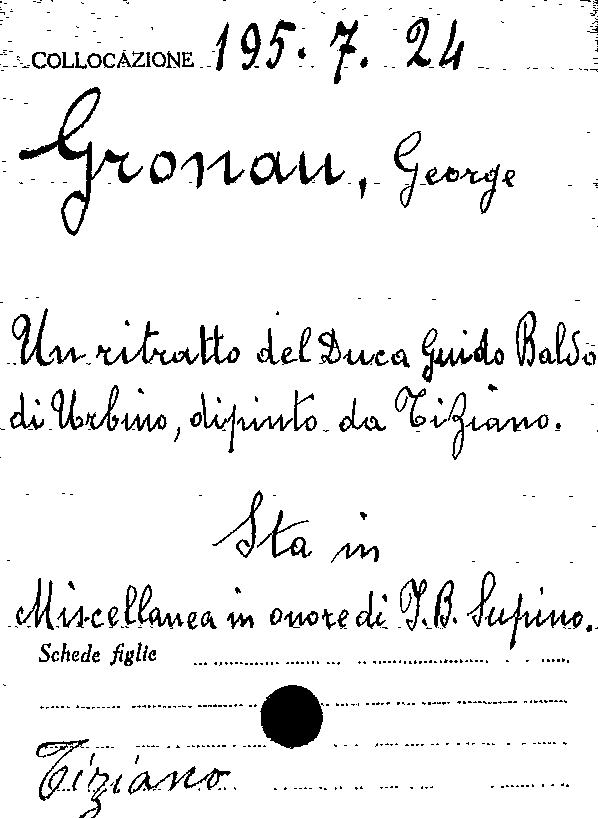 COLLOCAZIONE 195. 7. 24
Gronau, George
Un ritratto del Duca Guido Baldo
di Urbino, dipinto da Tiziano.
Sta in
Miscellanea in onore di J.B. Supino.
Schede figlie
Tiziano